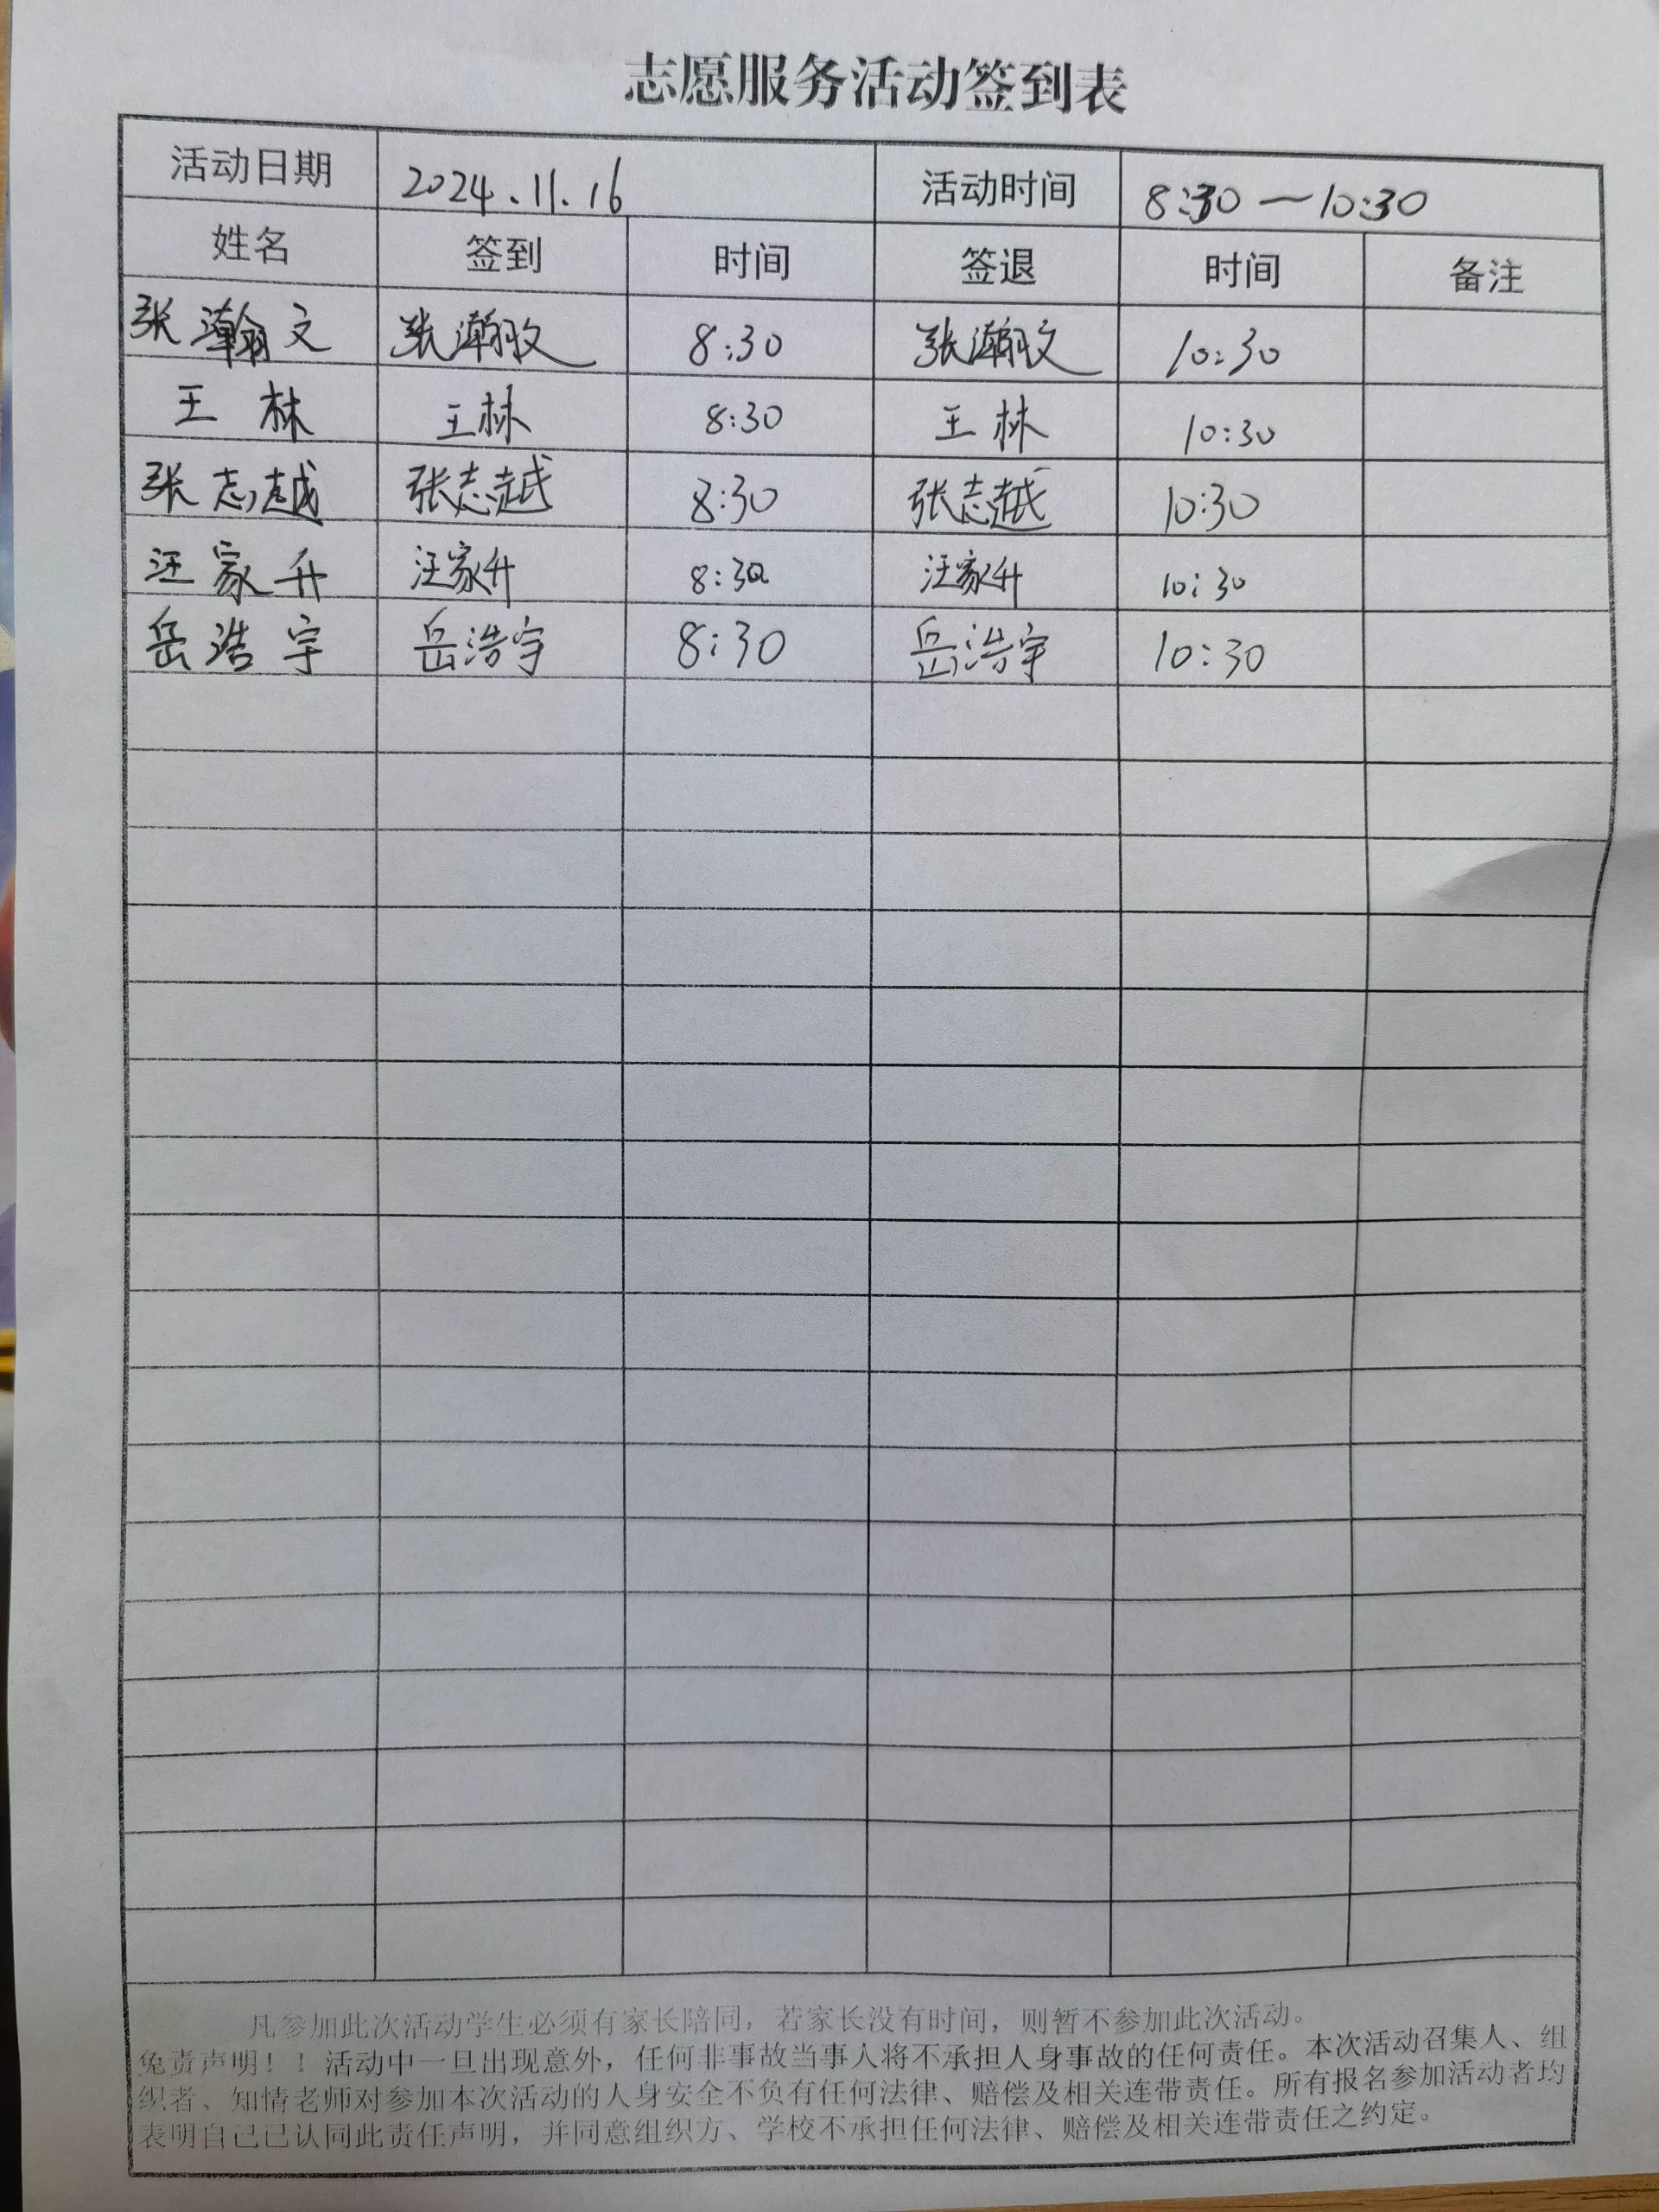 志愿服务活动签到表
活动日期 2024.11.16 活动时间 8:30—10:30
姓名 签到 时间 签退 时间 备注
张瀚文 张瀚文 8:30 张瀚文 10:30
王林 王林 8:30 王林 10:30
张志越 张志越 8:30 张志越 10:30
汪家升 汪家升 8:30 汪家升 10:30
岳浩宇 岳浩宇 8:30 岳浩宇 10:30
凡参加此次活动学生必须有家长陪同，若家长没有时间，则暂不参加此次活动。
免责声明！！活动中一旦出现意外，任何非事故当事人将不承担人身事故的任何责任。本次活动召集人、组
织者、知情老师对参加本次活动的人身安全不负有任何法律、赔偿及相关连带责任。所有报名参加活动者均
表明自己已认同此责任声明，并同意组织方、学校不承担任何法律、赔偿及相关连带责任之约定。